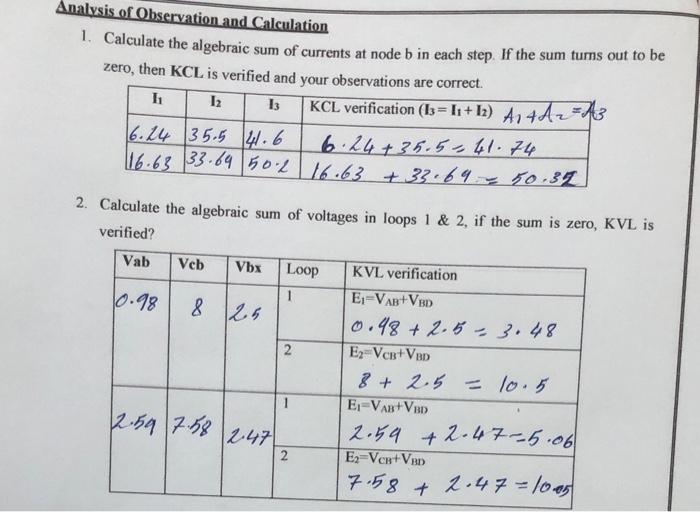 Analysis of Observation and Calculation
1. Calculate the algebraic sum of currents at node b in each step. If the sum turns out to be
zero, then KCL is verified and your observations are correct.
I1 I2 I3 KCL verification (I3= I1+ I2) A1+A2=A3
6.24 35.5 41.6 6.24+35.5=41.74
16.63 33.69 50.2 16.63 + 33.69 = 50.32
2. Calculate the algebraic sum of voltages in loops 1 & 2, if the sum is zero, KVL is
verified?
Vab Vcb Vbx Loop KVL verification
0.98 8 2.5 1 E1=VAB+VBD
0.98 + 2.5 = 3.48
2 E2=VCB+VBD
8 + 2.5 = 10.5
2.59 7.58 2.47 1 E1=VAB+VBD
2.59 + 2.47=5.06
2 E2=VCB+VBD
7.58 + 2.47 = 10.05